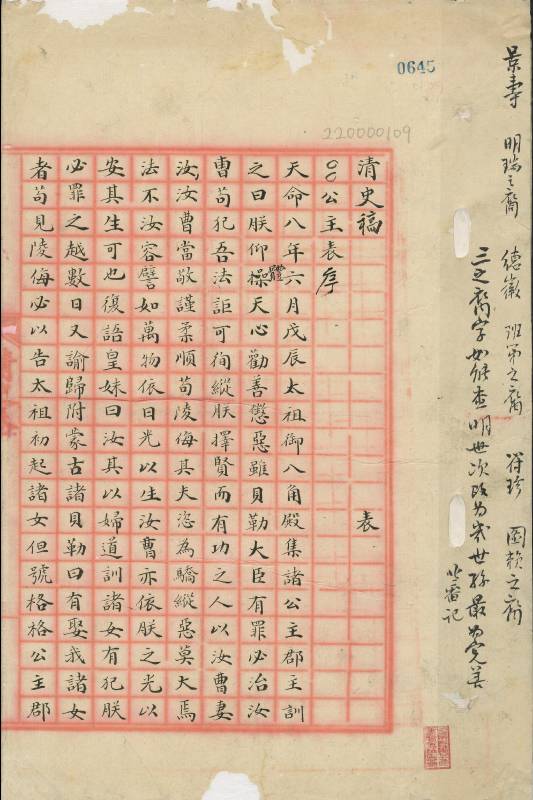 景壽 明瑞之裔 德徽 班第之裔 符珍 圖賴之裔
三之裔字如能查明世次改為幾世孫最為完善
記
0645
220000109
清史稿 表
○○公主表序
天命八年六月戊辰太祖御八角殿集諸公主郡主訓
之曰朕仰操體天心勸善懲惡雖貝勒大臣有罪必治汝
曹苟犯吾法詎可徇縱朕擇賢而有功之人以汝曹妻
汝汝曹當敬謹柔順苟陵侮其夫恣為驕縱惡莫大焉
法不汝容譬如萬物依日光以生汝曹亦依朕之光以
安其生可也復語皇妹曰汝其以婦道訓諸女有犯朕
必罪之越數日又諭歸附蒙古諸貝勒曰有娶我諸女
者苟見陵侮必以告太祖初起諸女但號格格公主郡